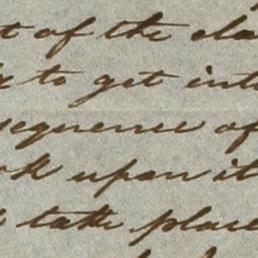 t of the cla
to get int
sequence of
ok upon it
take place